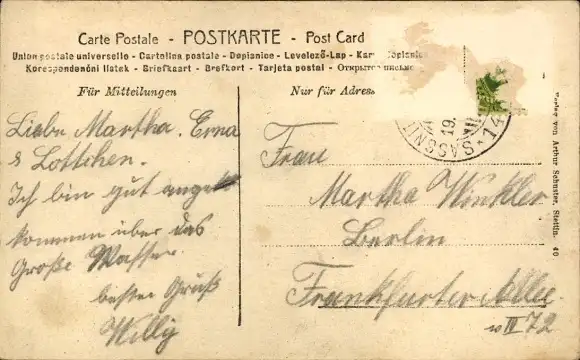 Carte Postale - POSTKARTE - Post Card
Union postale universelle - Cartolina postale - Dopisnice - Levelező-Lap -
Korespondenční lístek - Briefkaart - Brefkort - Tarjeta postal - Открытое письмо
Für Mitteilungen
Nur für Adres
SASSNIT
19.
14
Liebe Martha. Erna
& Lottchen.
Ich bin gut ange
kommen über das
Große Wasser.
besten Gruß
Willy
Frau
Martha Winkler
Berlin
Frankfurter Allee
III 72
Verlag von Arthur Schuster, Stettin. 40